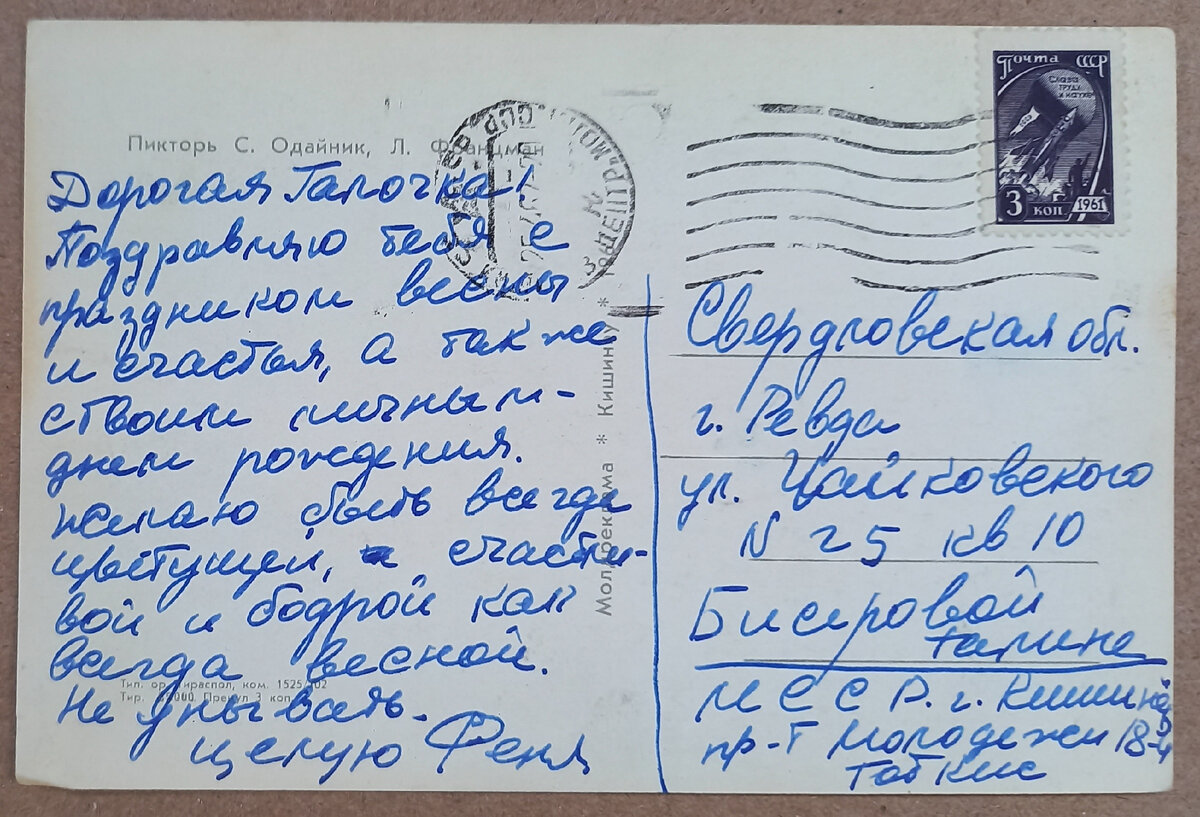 Пикторь С. Одайник, Л. Францман
Дорогая Галочка!
Поздравляю тебя с
праздником весны
и счастья, а также
с твоим личным-
днем рождения.
желаю быть всегда
цветущей, счастли-
вой и бодрой как
всегда весной.
Не унывать.
целую Феня
Тип. ор. Тираспол, ком. 1525/
Тир. Прецул 3 коп
Молдреклама * Кишинэу *
Почта СССР
Слава
труду
и науке!
3 коп 1961
Свердловская обл.
г. Ревда
ул. Чайковского
N 25 кв 10
Бисеровой
Галине
МССР. г. Кишинёв
пр-т Молодежи 18-4